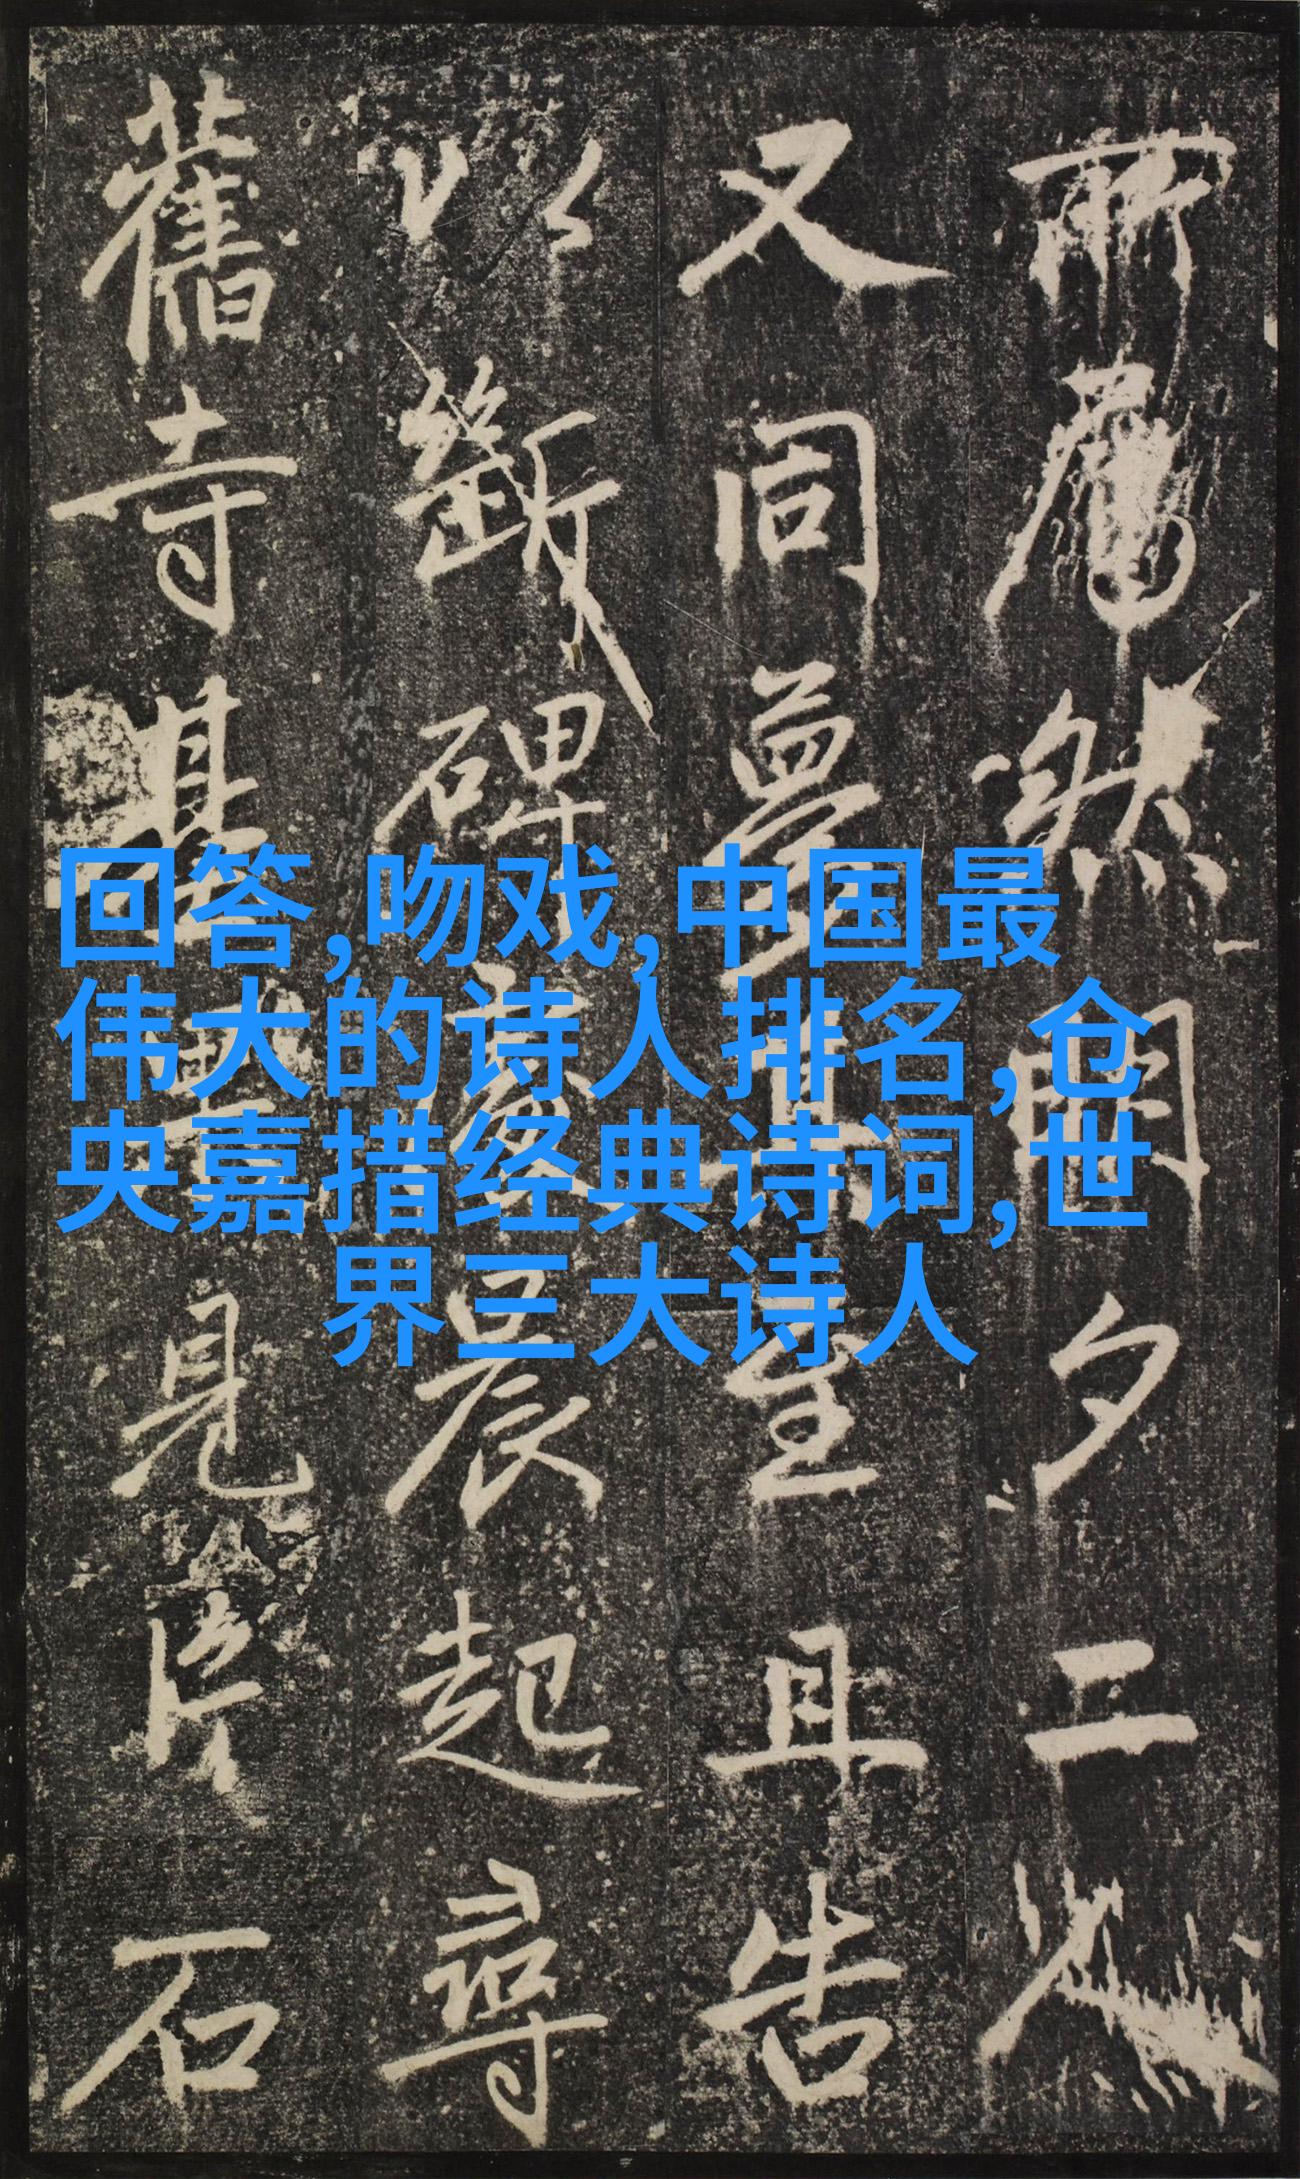 回答,吻戏,中国最
伟大的诗人排名,仓
央嘉措经典诗词,世
界三大诗人
然明夕二
又同夢其至且告
以斷碑晨起尋
舊寺基見片石